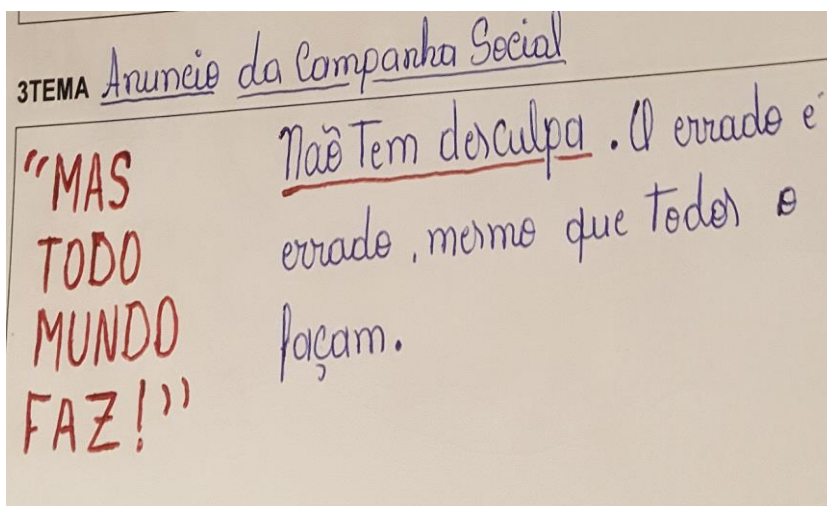 3TEMA Anuncio da Campanha Social
"MAS
TODO
MUNDO
FAZ!"
Não Tem desculpa. O errado é
errado, mesmo que Todos o
façam.